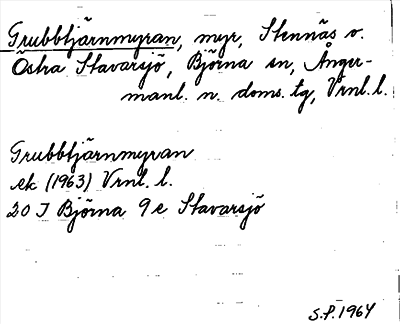 Grubbtjärnmyran, myr, Stennäs o.
Östra Stavarsjö, Björna sn, Ånger-
manl. n. doms. tg, Vrnl. l.
Grubbtjärnmyran
ek (1963) Vrnl. l.
20 I Björna 9 e Stavarsjö
S.P. 1964